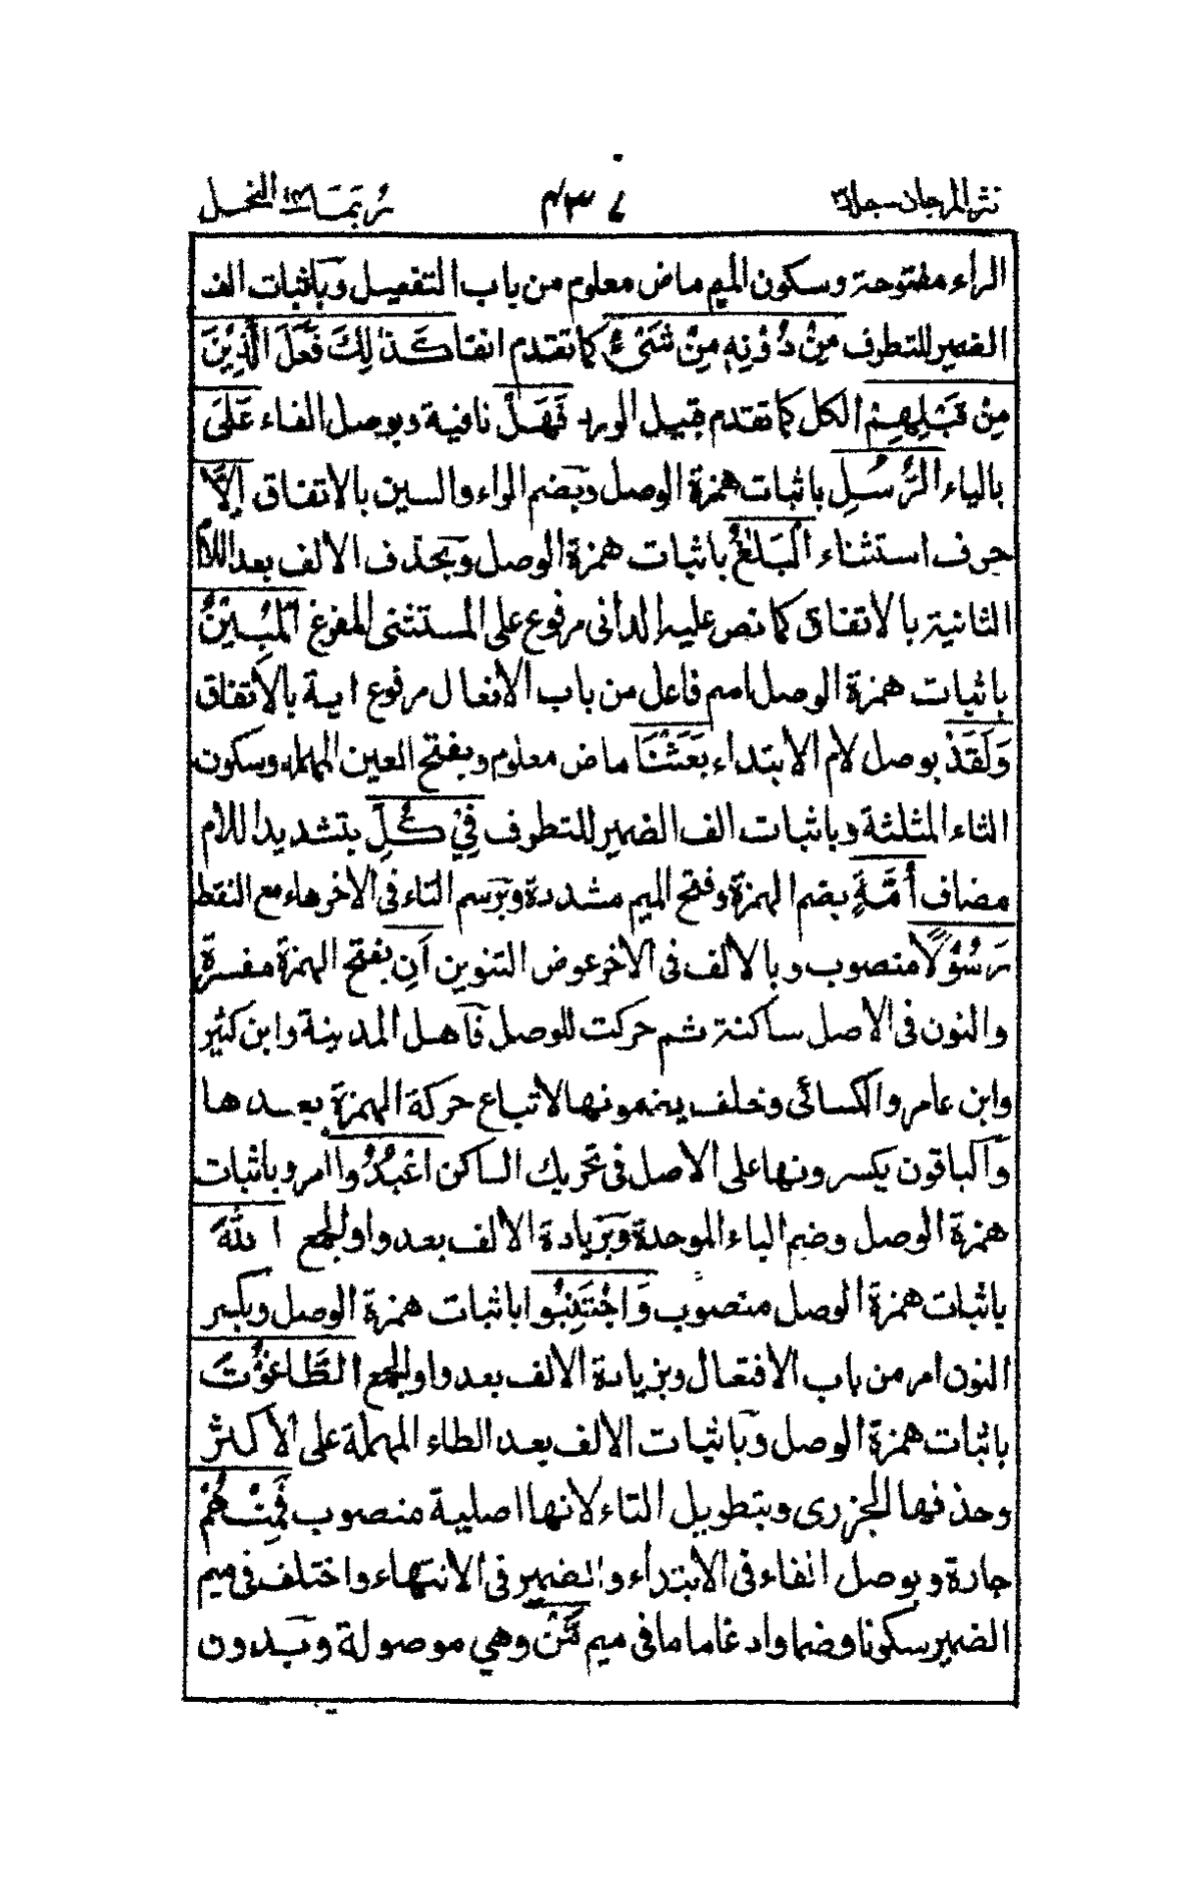 نثر المرجان - جلد ٣ ٤٣٧ ربما ١٤ النحل
الراء مفتوحة وسكون الميم ماض معلوم من باب التفعيل وباثبات الف
الضمير للتطرف مِنْ دُوْنِهٖ مِنْ شَىْءٍ كما تقدم انفا كَذٰلِكَ فَعَلَ الَّذِيْنَ
مِنْ قَبْلِهِمْ الكل كما تقدم قبيل الورد فَهَلْ نافية وبوصل الفاء عَلَى
بالياء الرُّسُلِ باثبات همزة الوصل وبضم الراء والسين بالاتفاق اِلَّا
حرف استثناء الْبَلٰغُ باثبات همزة الوصل وبحذف الالف بعد اللام
الثانية بالاتفاق كما نص عليه الدانى مرفوع على المستثنى المفرغ الْمُبِيْنُ
باثبات همزة الوصل اسم فاعل من باب الافعال مرفوع اية بالاتفاق
وَلَقَدْ بوصل لام الابتداء بَعَثْنَا ماض معلوم وبفتح العين المهملة وسكون
الثاء المثلثة وباثبات الف الضمير للتطرف فِيْ كُلِّ بتشديد اللام
مضاف اُمَّةٍ بضم الهمزة وفتح الميم مشددة وبرسم التاء فى الاخر هاء مع النقط
رَسُوْلًا منصوب وبالالف فى الاخر عوض التنوين اَنِ بفتح الهمزة مفسرة
والنون فى الاصل ساكنة ثم حركت للوصل فاهل المدينة وابن كثير
وابن عامر والكسائى وخلف يضمونها لاتباع حركة الهمزة بعدها
والباقون يكسرونها على الاصل فى تحريك الساكن اعْبُدُوا امر وباثبات
همزة الوصل وضم الباء الموحدة وبزيادة الالف بعد واو الجمع اللهَ
باثبات همزة الوصل منصوب وَاجْتَنِبُوا باثبات همزة الوصل وبكسر
النون امر من باب الافتعال وبزيادة الالف بعد واو الجمع الطَّاغُوْتَ
باثبات همزة الوصل وباثبات الالف بعد الطاء المهملة على الاكثر
وحذفها الجزرى وبتطويل التاء لانها اصلية منصوب فَمِنْهُمْ
جارة وبوصل الفاء فى الابتداء والضمير فى الانتهاء واختلف فى ميم
الضمير سكونا وضما وادغاما مافى ميم مَّنْ وهي موصولة وبدون